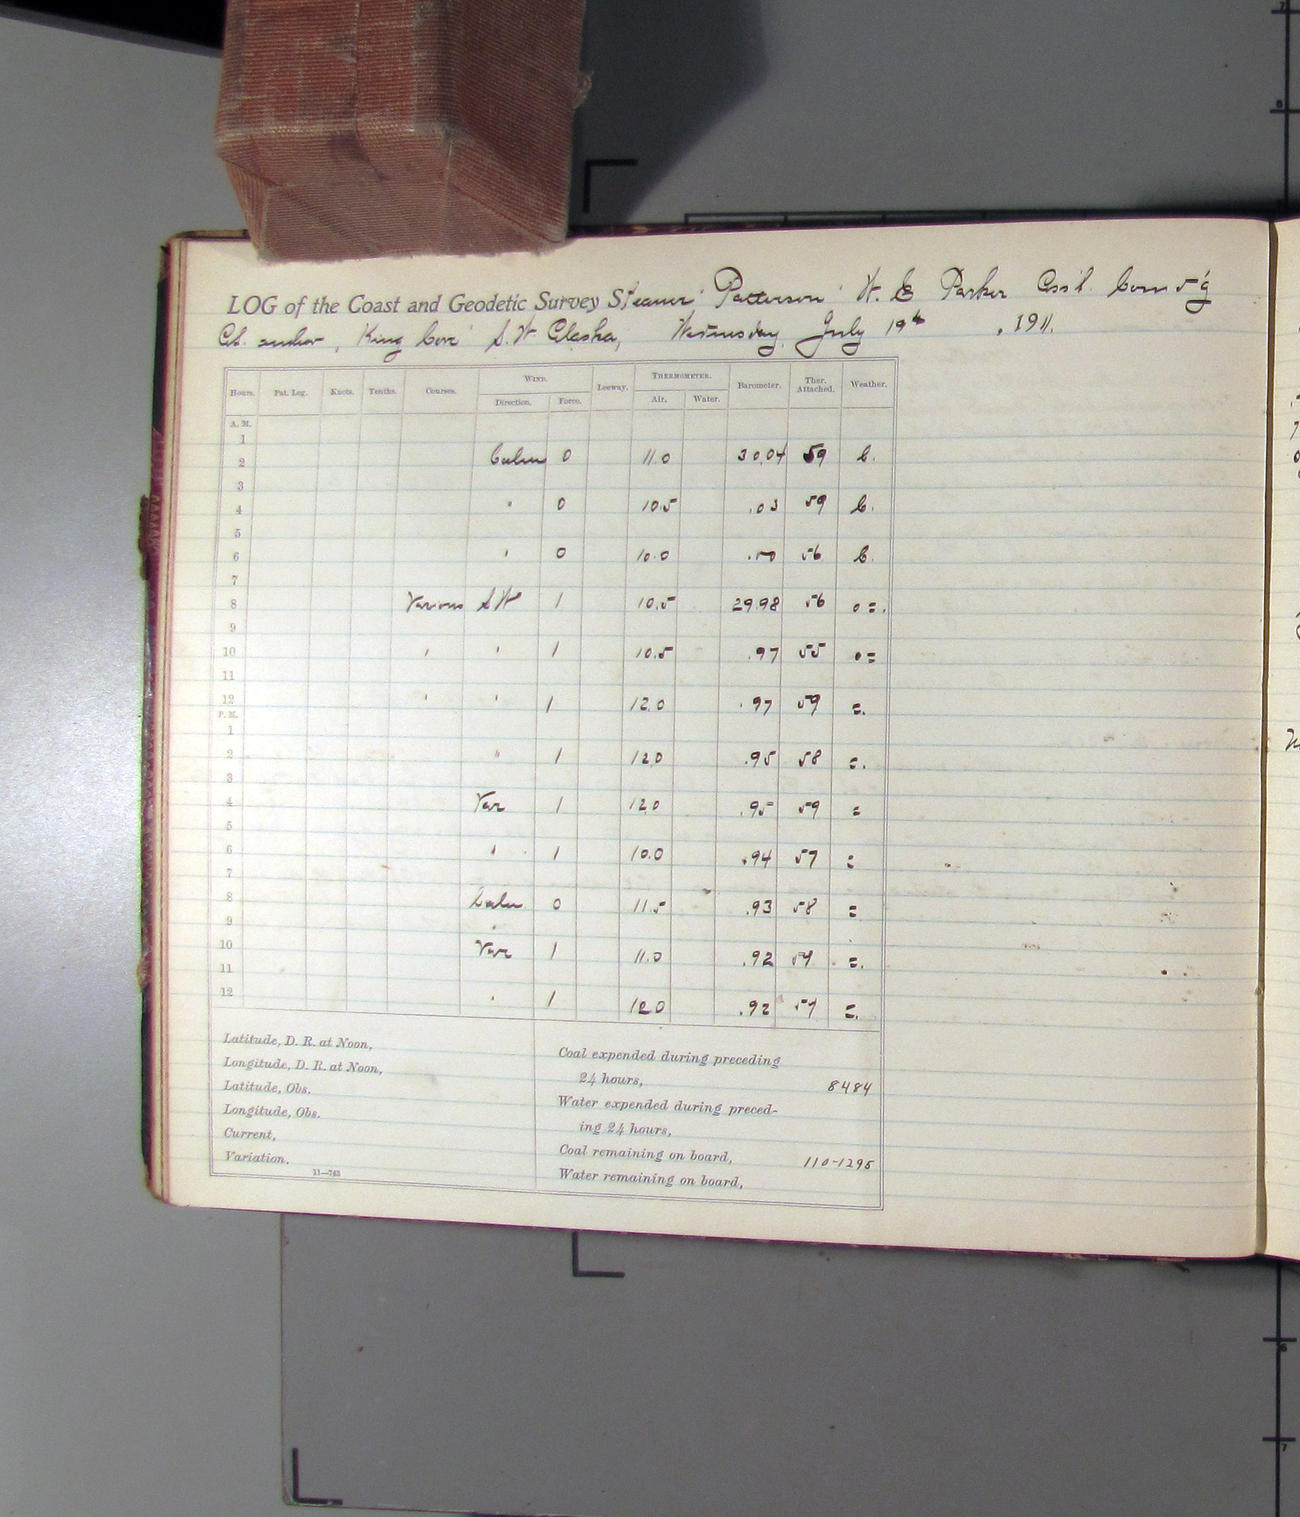 LOG of the Coast and Geodetic Survey Steamer "Patterson" W. E. Parker Ass't. Com'd'g
At anchor, King Cove S.W. Alaska, Wednesday July 19th, 1911.
Hours. Pat. Log. Knots. Tenths. Courses. WIND. Direction. Force. Leeway. THERMOMETER. Air. Water. Barometer. Ther. Attached. Weather.
A. M.
1
2 Calm 0 11.0 30.04 59 b.
3
4 " 0 10.5 .03 59 b.
5
6 " 0 10.0 56 b.
7
8 Various SW 1 10.5 29.98 56 o=.
9
10 " " 1 10.5 .97 55 o=
11
12 " " 1 12.0 .97 59 =.
P. M.
1
2 " 1 12.0 .95 58 =.
3
4 Var 1 12.0 .95 59 =
5
6 " 1 10.0 .94 57 =
7
8 Calm 0 11.5 .93 58 =
9
10 Var 1 11.0 .92 =.
11
12 " 1 12.0 .92 =.
Latitude, D. R. at Noon,
Longitude, D. R. at Noon,
Latitude, Obs.
Longitude, Obs.
Current,
Variation.
11—743
Coal expended during preceding
24 hours, 8484
Water expended during preced-
ing 24 hours,
Coal remaining on board, 110-1295
Water remaining on board,